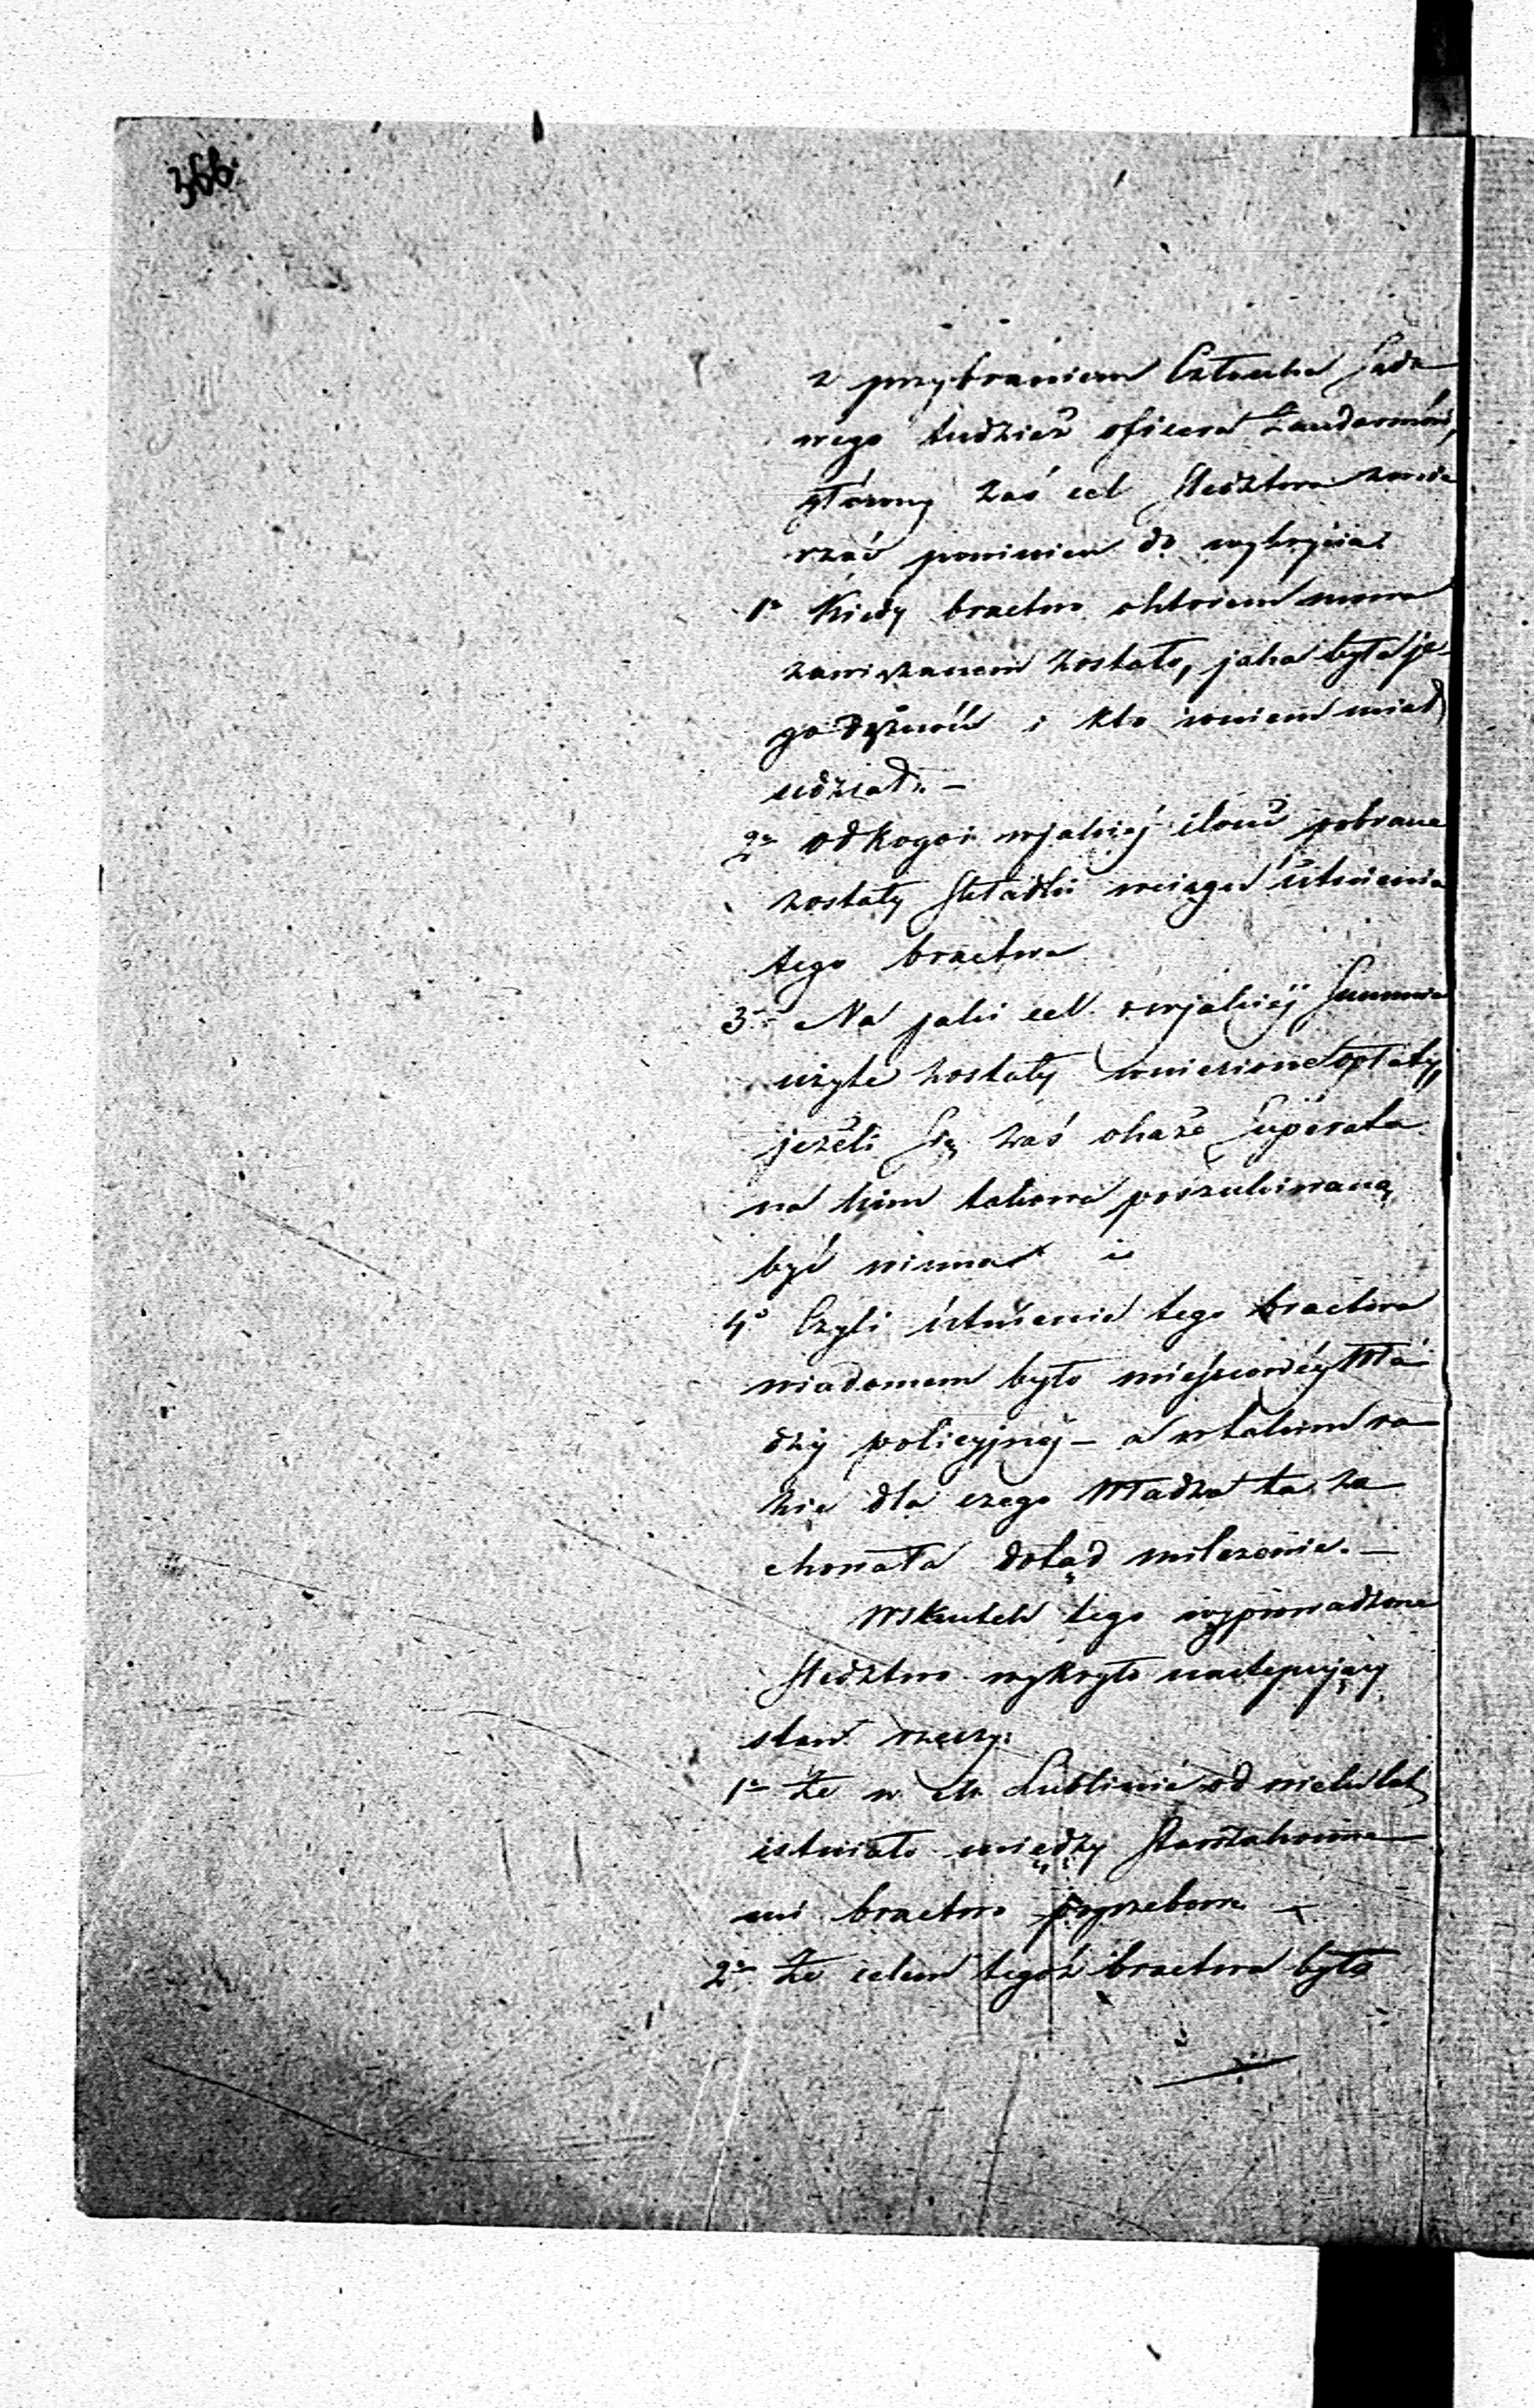 366.
z przybraniem Członka Sądo
wego tudzież oficera Żandarmów,
główny zaś cel Sledztwa zmie
rzać powinien do wykrycia:
1o Kiedy bractwo októrem mowa
zawiązanem zostało, jaka była je-
go dążność i kto wniem miał
udział. –
2o od kogo i wjakiéj ilości pobrane
zostały Składki wciągu istnienia
tego bractwa
3o Na jaki cel i wjakiéj Summie
użyte zostały wniesione opłaty,
jeżeli Się zaś okaże Superata
na kim takowa poszukiwaną
być winna i
4o Czyli istnienie tego bractwa
wiadomem było miejscowéy Wła
dzy policyjnéj – a wtakim ra
zie dla czego Władza ta za
chowała dotąd milczenie. –
Wskutek tego wyprowadzone
Sledztwo wykryło następujący
stan rzeczy:
1o Że w M. Lublinie od wielu lat
istniało między Starozakonne
mi bractwo pogrzebowe –
2o Że celem tegoż bractwa było